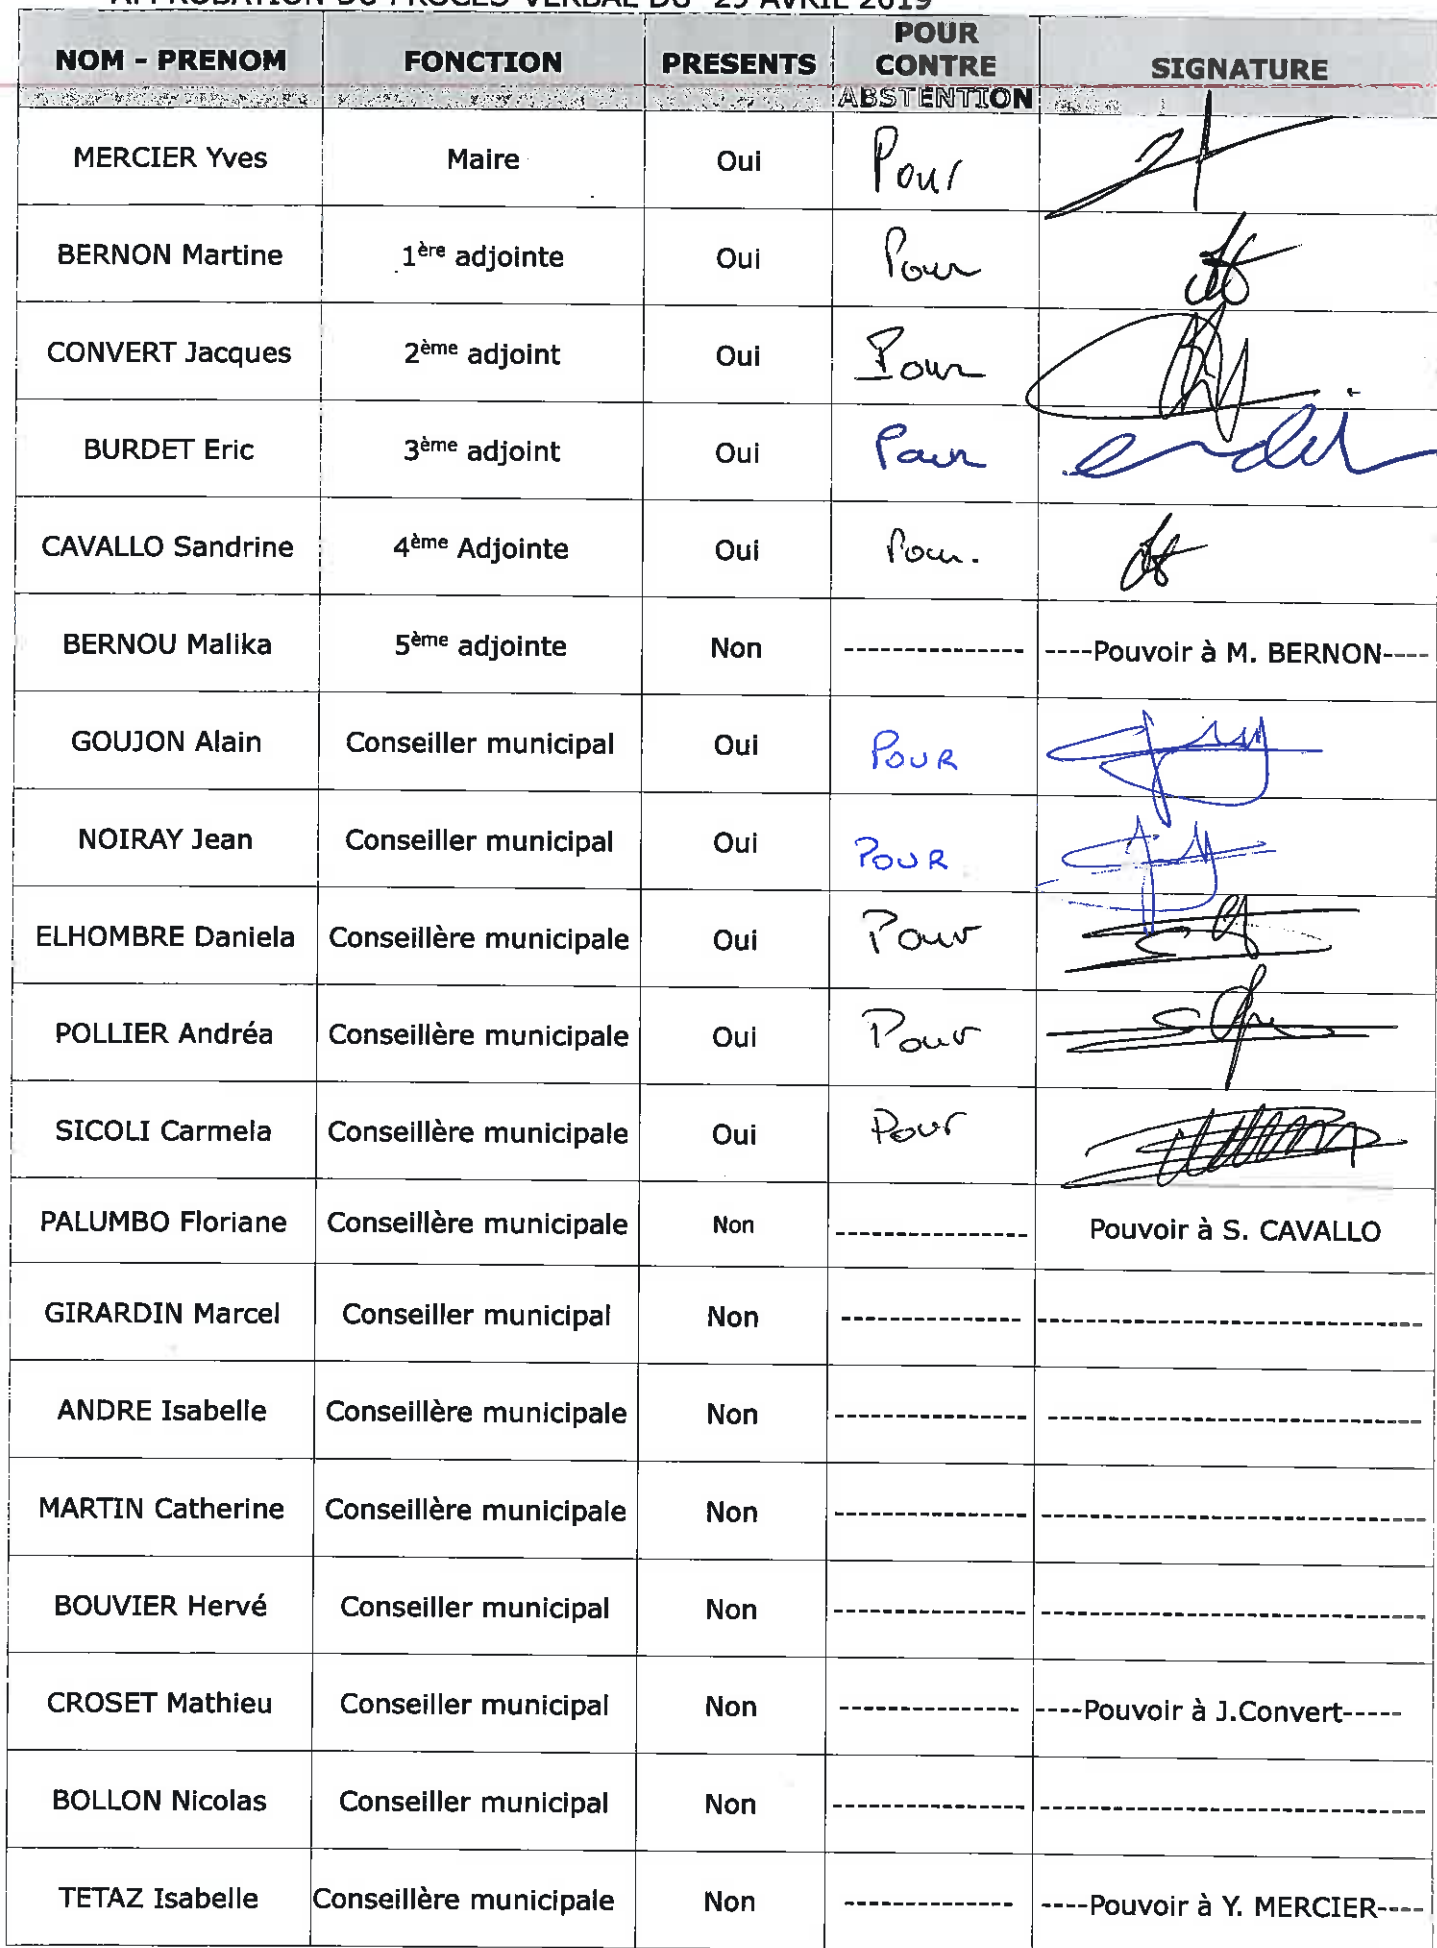 APPROBATION DU PROCES VERBAL DU 29 AVRIL 2019
NOM - PRENOM FONCTION PRESENTS POUR CONTRE ABSTENTION SIGNATURE
MERCIER Yves Maire Oui Pour
BERNON Martine 1ère adjointe Oui Pour
CONVERT Jacques 2ème adjoint Oui Pour
BURDET Eric 3ème adjoint Oui Pour
CAVALLO Sandrine 4ème Adjointe Oui Pour.
BERNOU Malika 5ème adjointe Non -------------- ----Pouvoir à M. BERNON----
GOUJON Alain Conseiller municipal Oui POUR
NOIRAY Jean Conseiller municipal Oui POUR
ELHOMBRE Daniela Conseillère municipale Oui Pour
POLLIER Andréa Conseillère municipale Oui Pour
SICOLI Carmela Conseillère municipale Oui Pour
PALUMBO Floriane Conseillère municipale Non --------------- Pouvoir à S. CAVALLO
GIRARDIN Marcel Conseiller municipal Non -------------- ------------------------------
ANDRE Isabelle Conseillère municipale Non --------------- ------------------------------
MARTIN Catherine Conseillère municipale Non --------------- ------------------------------
BOUVIER Hervé Conseiller municipal Non --------------- ------------------------------
CROSET Mathieu Conseiller municipal Non -------------- ----Pouvoir à J.Convert-----
BOLLON Nicolas Conseiller municipal Non --------------- ------------------------------
TETAZ Isabelle Conseillère municipale Non -------------- ----Pouvoir à Y. MERCIER----